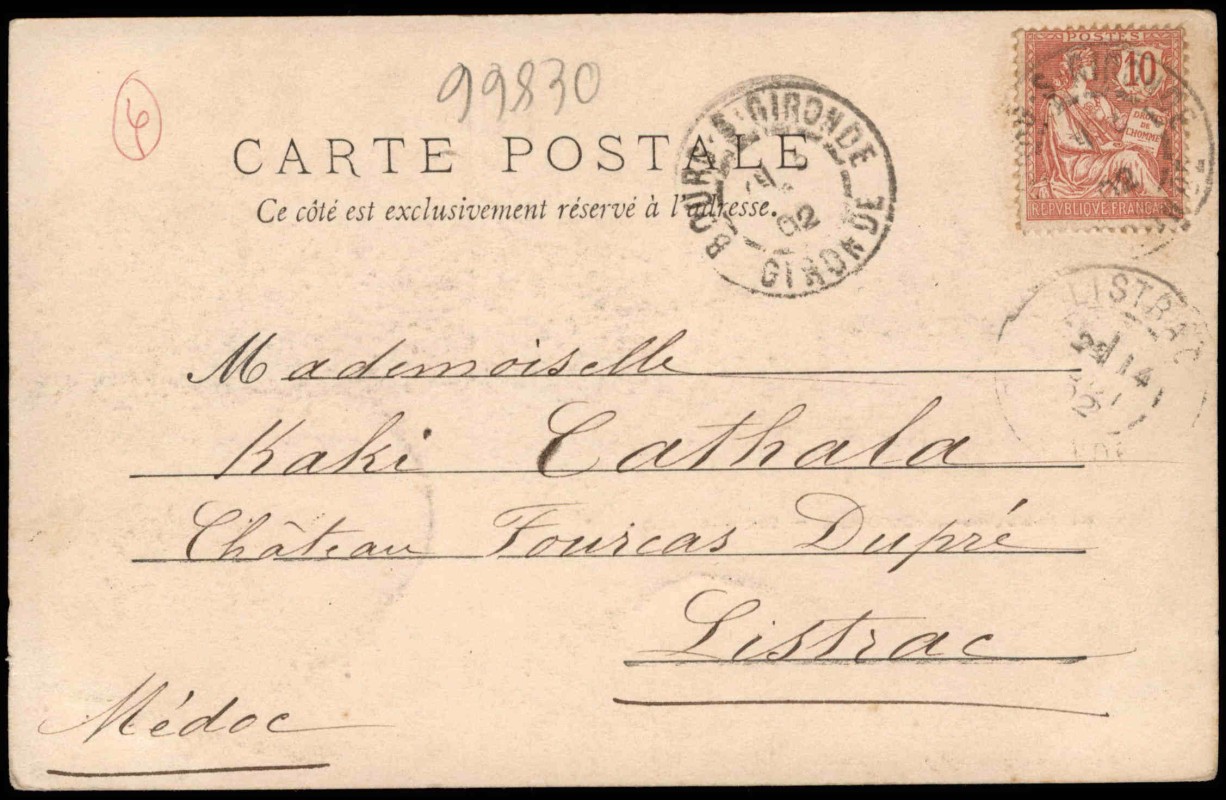 99830
6
CARTE POSTALE
Ce côté est exclusivement réservé à l'adresse.
BOURG-S-GIRONDE
02
GIRONDE
POSTES
10
DROITS
DE
L'HOMME
REPVBLIQUE FRANÇAISE
LISTRAC
14
02
Mademoiselle
Kaki Cathala
Château Fourcas Dupré
Listrac
Médoc